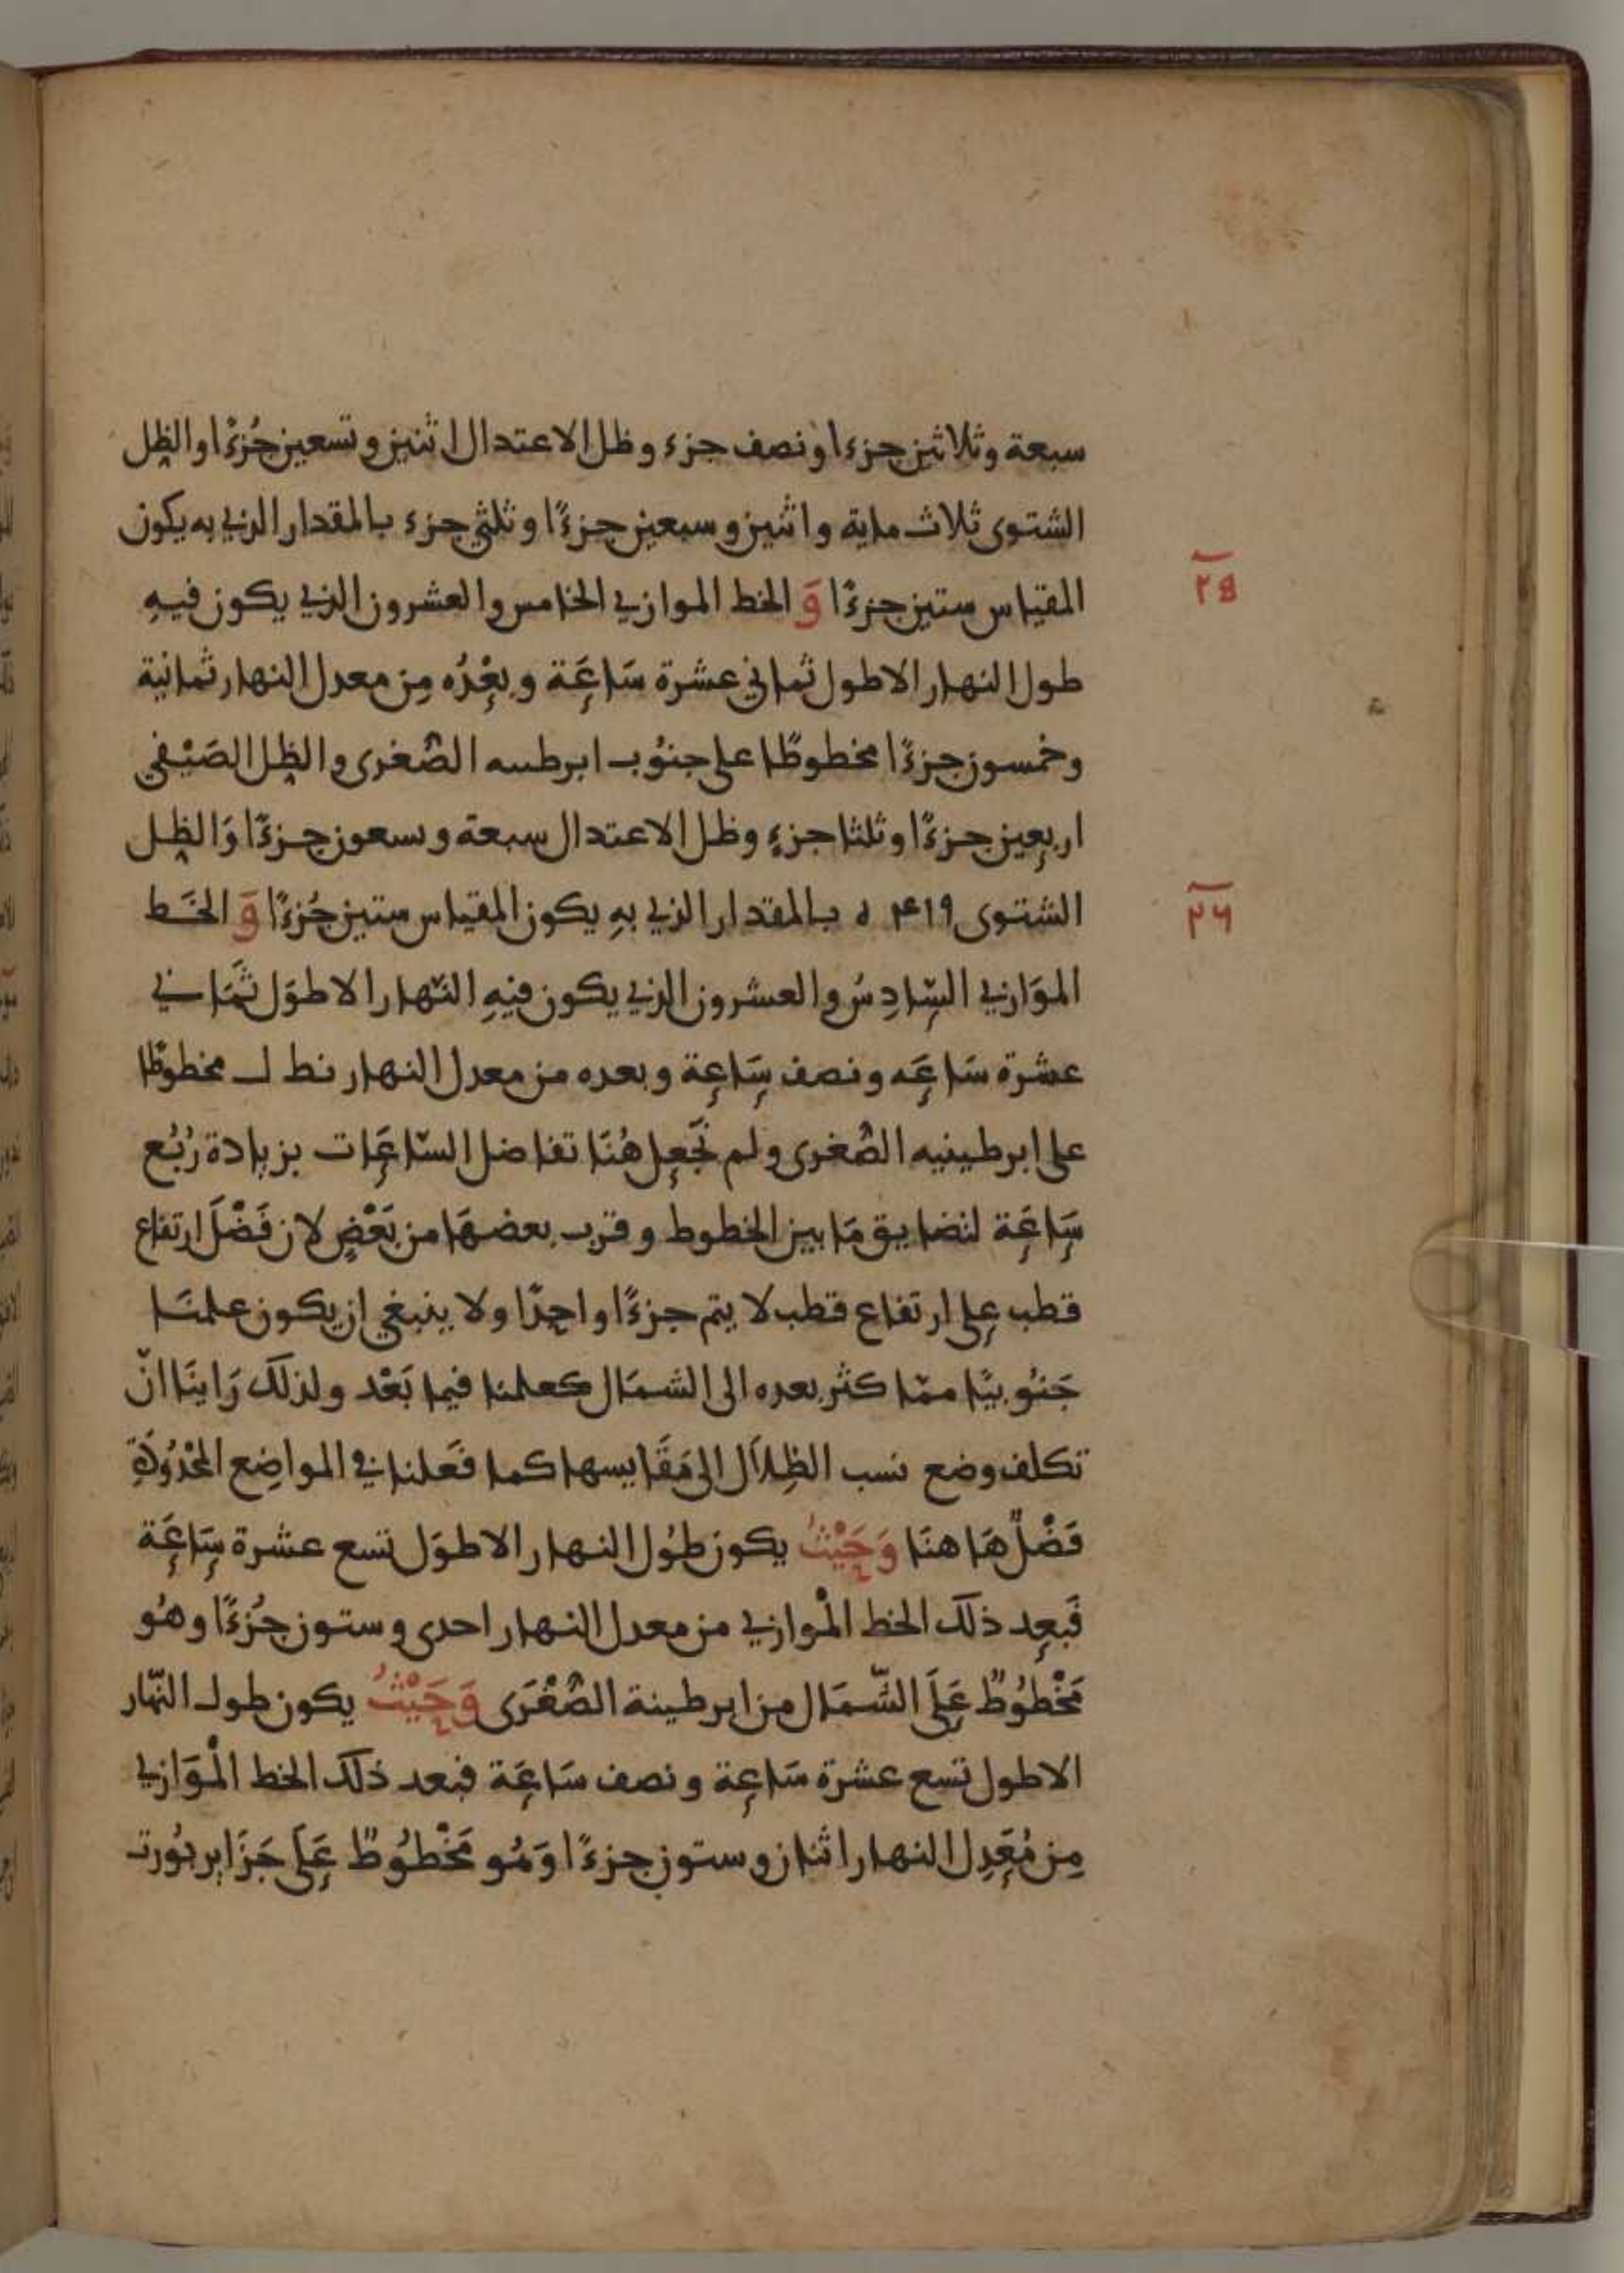 سبعة وثلاثين جزءا ونصف جزء وظل الاعتدال اثنين وتسعين جُزءًا والظِل
الشتوى ثلاث ماية واثنين وسبعين جزءًا وثلثي جزء بالمقدار الذي به يكون
٢٥
المقياس ستين جزءًا وَ الخط الموازي الخامس والعشرون الذي يكون فيهِ
طول النهار الاطول ثماني عشرة سَاعَة وبعْدُه مِن معدل النهار ثمانية
وخمسون جزءًا مخطوطًا على جنوُب ابرطىىه الصُغرى والظِل الصَيْفي
اربعين جزءًا وثلثا جزءٍ وظل الاعتدال سبعة وىسعون جزءًا وَالظِل
٢٦
الشتوى ٤١٩ ٥ بالمقدار الذي بهِ يكون المقياس ستين جُزءًا وَ الخَط
الموَازي السَّادِسُ والعشرون الذي يكون فيهِ النّهار الاطوَل ثَمَاني
عشرة سَاعَه ونصف سَاعة وبعده من معدل النهار نط ل مخطوطًا
على ابرطينيه الصُغرى ولم نَجعل هُنَا تفاضل السّاعَات بزيادة رُبُع
سَاعَة لتضايق مَا بين الخطوط وقرب بعضهَا من بَعْضٍ لان فَضْلَ ارتفاع
قطب على ارتفاع قطب لا يتم جزءًا واحِدًا ولا ينبغي ان يكون عملنَا
جَنوُبيًا ممّا كثر بعده الى الشمَال كعملنا فيما بَعْد ولذلك رَاينَا انّ
تكلف وضع نسب الظِلاَل الى مَقَايسها كما فَعلنا في المواضِع المحْدُودَةِ
فَضْلٌ هَا هنَا وَحَيْثُ يكون طوُل النهار الاطوَل تسع عشرة سَاعَة
فَبعد ذلك الخط الْموازي من معدل النهار احدى وستون جُزءًا وهُو
مَخْطوُطٌ عَلَى الشّمَال من ابرطينة الصُغْرَى وَحَيْثُ يكون طول النّهار
الاطول تسع عشرة سَاعة ونصف سَاعَة فبعد ذلك الخط الْموَازي
مِن مُعَدِل النهار اثنان وستون جزءًا وَهُو مَخْطوُطٌ عَلَى جَزَاىر ىُورت